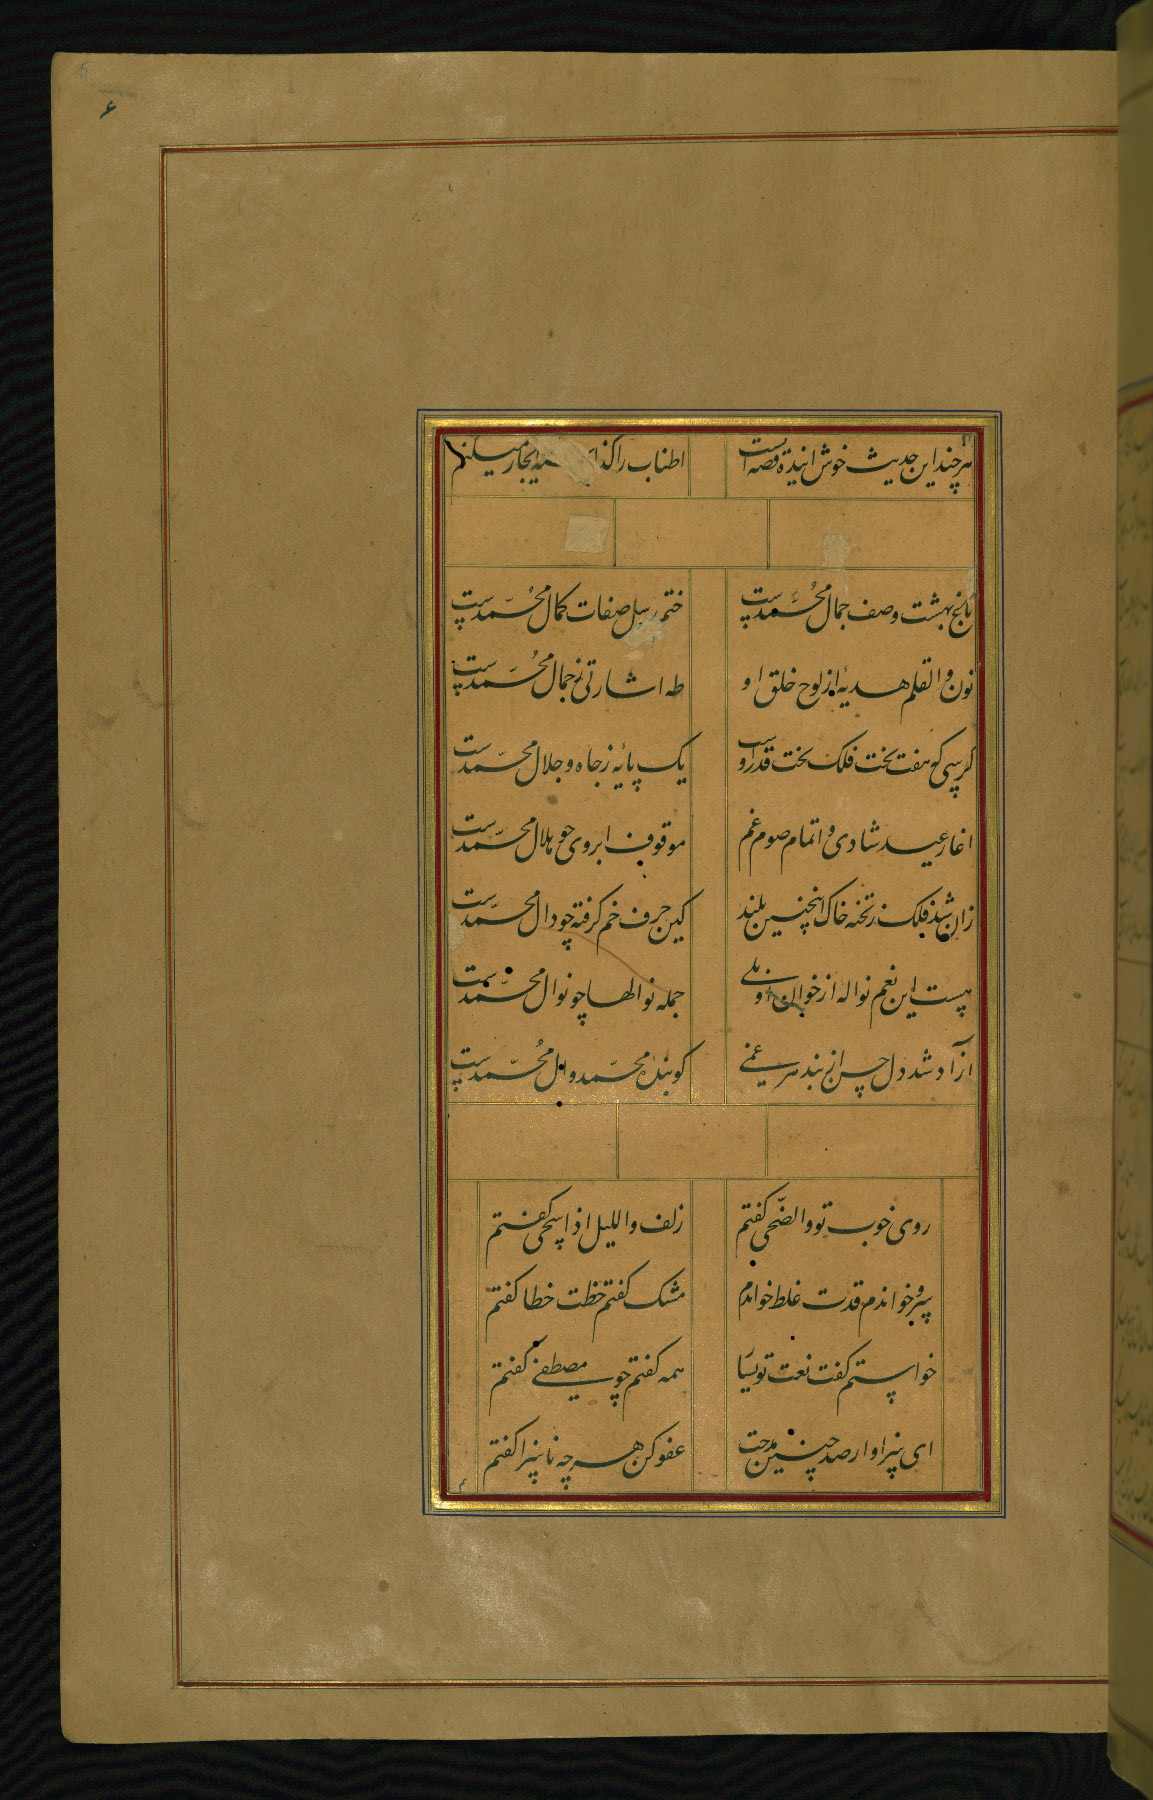 ۶
هر چند این حدیث خوش آینده قصه است
اطناب را ایجاز میکنم
بهشت وصف جمال محمدست
ختم رسل صفات کمال محمدست
نون والقلم هدیهٔ از لوح خلق او
طه اشارتی ز جمال محمدست
کرسی که هفت تخت فلک تخت قدر اوست
یک پایه ز جاه و جلال محمدست
اغاز عید شادی و اتمام صوم غم
موقوف ابروی چو هلال محمدست
زان شد فلک ز تخته خاک اینچنین بلند
کین حرف خم گرفته چو دال محمدست
هست این نعم نواله از خوان او بلی
جمله نوالها چو نوال محمدست
آزاد شد دل حسن از بند هر غمی
کو بنده محمد و آل محمدست
روی خوب تو والضحی گفتم
زلف واللیل اذا سجی گفتم
سرو خواندم قدت غلط خواندم
مشک گفتم خطت خطا گفتم
خواستم گفت نعت تو بسیا
همه گفتم چو مصطفی گفتم
ای سزاوار صد چنین مدحت
عفو کن هر چه ناسزا گفتم